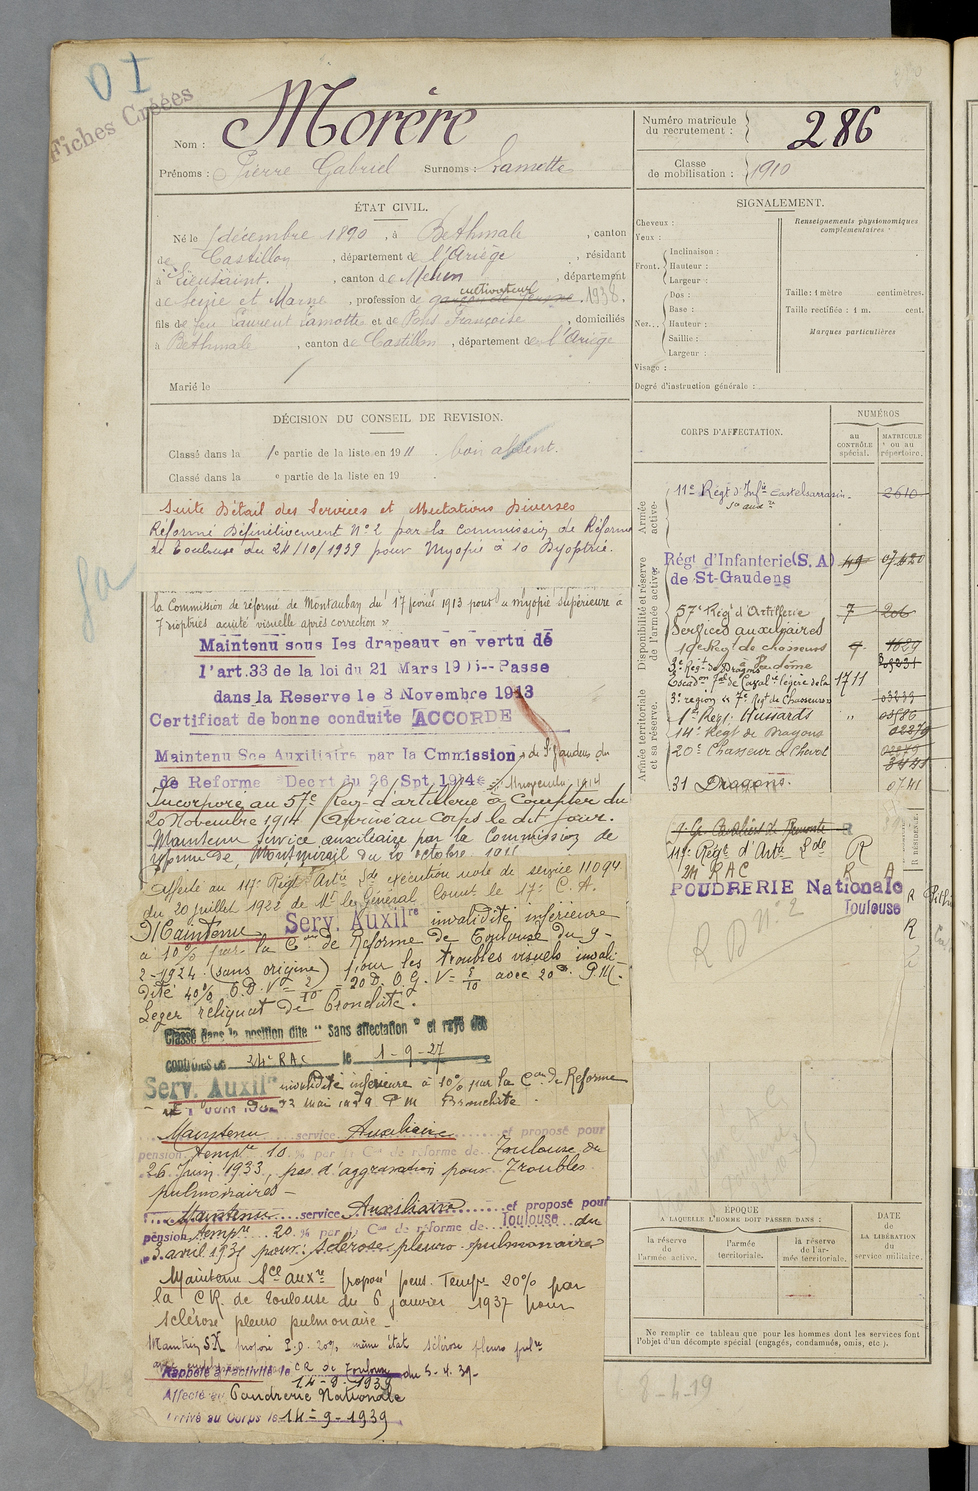 OI
Fiches Créées
Nom : Morère
Prénoms : Pierre Gabriel Surnoms : Lamotte
Numéro matricule du recrutement : 286
Classe de mobilisation : 1910
ÉTAT CIVIL.
Né le 1 décembre 1890, à Bethmale, canton
de Castillon, département de l'Ariège, résidant
à Lieusaint, canton de Melun, département
de Seine et Marne, profession de cultivateur 1938,
fils de feu Laurent Lamotte et de Pons Françoise, domiciliés
à Bethmale, canton de Castillon, département de l'Ariège
Marié le
SIGNALEMENT.
Cheveux :
Yeux :
Front. Inclinaison :
Hauteur :
Largeur :
Nez... Dos :
Base :
Hauteur :
Saillie :
Largeur :
Visage :
Degré d'instruction générale :
Renseignements physionomiques complémentaires :
Taille : 1 mètre centimètres.
Taille rectifiée : 1 m. cent.
Marques particulières
DÉCISION DU CONSEIL DE REVISION.
Classé dans la 1e partie de la liste en 1911. bon absent.
Classé dans la e partie de la liste en 19
Suite Détail des Services et Mutations Diverses
Réformé Définitivement N° 2 par la Commission de Réforme
de Toulouse du 24/10/1939 pour Myopie à 10 Dyoptrie.
la Commission de réforme de Montauban du 17 février 1913 pour « myopie supérieure à
7 dioptries acuité visuelle après correction »
Maintenu sous les drapeaux en vertu de
l'art. 33 de la loi du 21 Mars 1905 -- Passe
dans la Reserve le 8 Novembre 1913
Certificat de bonne conduite ACCORDE
Maintenu Sce Auxiliaire par la Cmmission de St Gaudens du
de Reforme Decrt du 26 Spt 1914
Incorporé au 57e Reg. d'artillerie à Compter du
20 Novembre 1914 Arrivé au Corps le dit jour.
Maintenu Service auxiliaire par la Commission de
réforme de Montmirail du 20 octobre
Affecté au 117e Régt Artie Lde exécution note de service 11094
du 20 juillet 1922 de Mr le Général Comt le 17e C. A.
Maintenu Serv. Auxilre invalidité inférieure
à 10% par la Con de Reforme de Toulouse du 9-
2-1924 (sans origine) pour les troubles visuels invali-
dité 40% O.D. V = 2/10 - 20 D. O.G. V = 5/10 avec 20 D. P.M.
Leger reliquat de bronchite.
Classé dans la position dite " Sans affectation " et rayé des
controles de 24e RAC le 1-9-27
Serv. Auxilre invalidité inférieure à 10% par la Con de Reforme
22 mai 1929 P M Bronchite.
Maintenu service Auxiliaire et proposé pour
pension tempre 10 % par la Con de réforme de Toulouse du
26 Juin 1933, pas d'aggravation pour Troubles
pulmonaires -
Maintenu service Auxiliaire et proposé pour
pension tempre 20 % par la Con de réforme de Toulouse du
3 avril 1935 pour : sclérose pleuro-pulmonaire
Maintenu Sce auxre proposé pens. Tempre 20% par
la CR. de Toulouse du 6 janvier 1937 pour
sclérose pleuro pulmonaire -
Maintenu SX proposé P.D. 20% même état sclérose pleuro pulre
CR de Toulouse du 5-4-39-
Rappelé à l'activité le 14-9-1939
Affecté au Poudrerie Nationale
Arrivé au Corps le 14-9-1939
CORPS D'AFFECTATION.
NUMÉROS
AU CONTRÔLE spécial.
MATRICULE ou au répertoire.
Armée active.
11e Régt d'Infie Castelsarrasin 2610
Sce auxre
Disponibilité et réserve de l'armée active.
Régt d'Infanterie (S. A) 49 07420
de St-Gaudens
57e Régt d'Artillerie 7 206
Services auxiliaires
19e Regt de chasseurs 9 1029
3e Regt de Dragons
1711
3e region « 7e Regt de Chasseurs »
Armée territoriale et sa réserve.
1er Regt Hussards "
14e Régt de Dragons
20e Chasseur à Cheval
31 Dragons. 0741
1 Gr. Cavaliers de Remonte R
117e Régt d'Artie Lde R
24 RAC R A
POUDRERIE Nationale
Toulouse
R D N° 2
ÉPOQUE
A LAQUELLE L'HOMME DOIT PASSER DANS :
la réserve de l'armée active.
l'armée territoriale.
la réserve de l'armée territoriale.
DATE de LA LIBÉRATION du service militaire.
Ne remplir ce tableau que pour les hommes dont les services font
l'objet d'un décompte spécial (engagés, condamnés, omis, etc.).
8-4-19